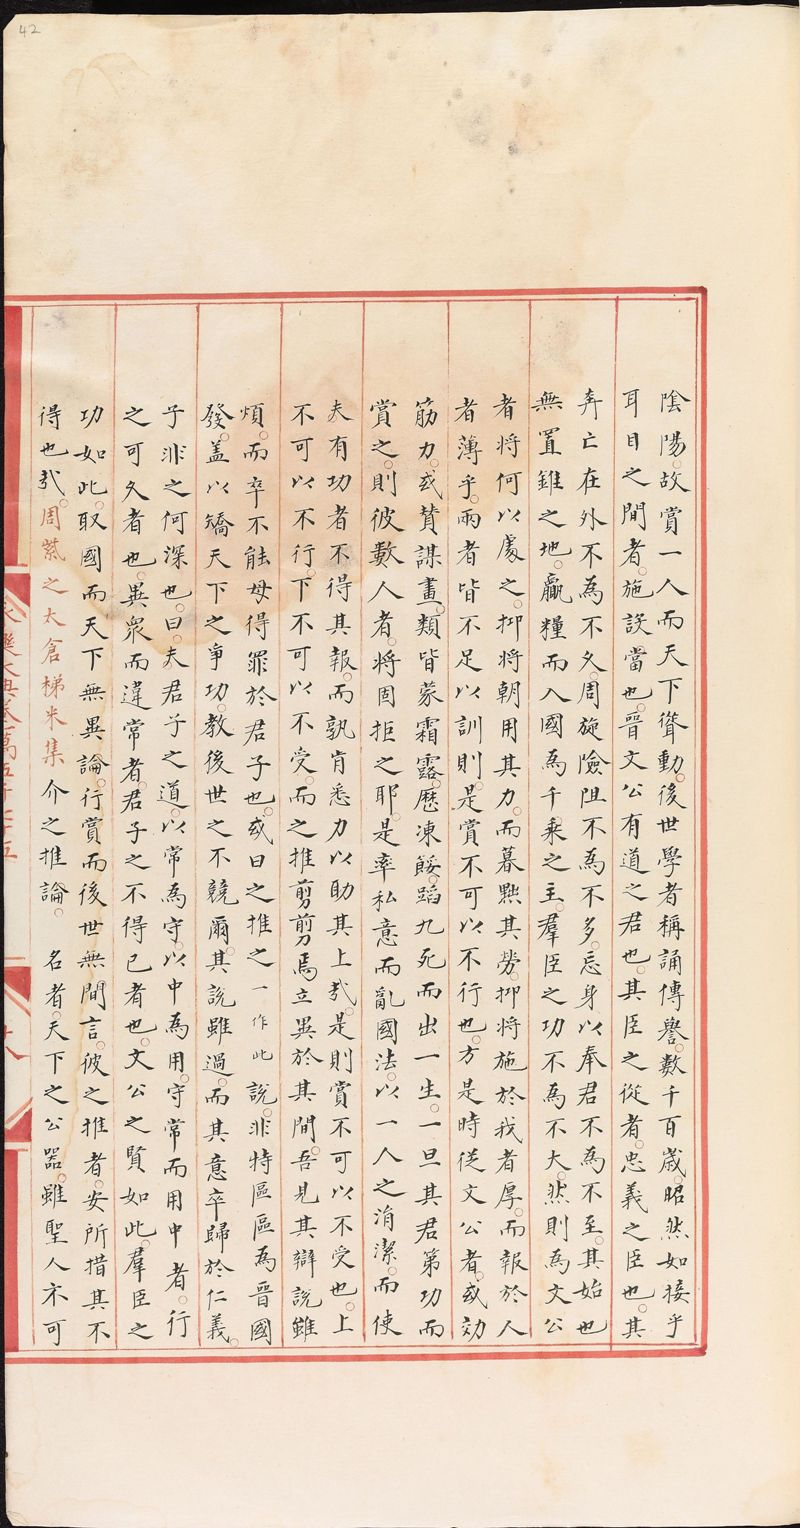 42
陰陽故賞一人而天下聳動後世學者稱誦傳譽數千百歲昭然如接乎
耳目之間者施設當也晉文公有道之君也其臣之從者忠義之臣也其
奔亡在外不為不久周旋險阻不為不多忘身以奉君不為不至其始也
無置錐之地羸糧而入國為千乘之主羣臣之功不為不大然則為文公
者將何以處之抑將朝用其力而暮黜其勞抑將施於我者厚而報於人
者薄乎兩者皆不足以訓則是賞不可以不行也方是時從文公者或効
筋力或賛謀畫類皆蒙霜露歷凍餒蹈九死而出一生一旦其君第功而
賞之則彼數人者將固拒之耶是率私意而亂國法以一人之涓潔而使
夫有功者不得其報而孰肯悉力以助其上㢤是則賞不可以不受也上
不可以不行下不可以不受而之推剪剪焉立異於其間吾見其辯說雖
煩而卒不能毋得罪於君子也或曰之推之一作此說非特區區為晉國
發盖以矯天下之爭功教後世之不競爾其說雖過而其意卒歸於仁義
子非之何深也曰夫君子之道以常為守以中為用守常而用中者行
之可久者也異衆而違常者君子之不得已者也文公之賢如此羣臣之
功如此取國而天下無異論行賞而後世無間言彼之推者安所措其不
得也㢤周紫之太倉梯米集介之推論 名者天下之公器雖聖人不可
永樂大典卷一萬五千七十五